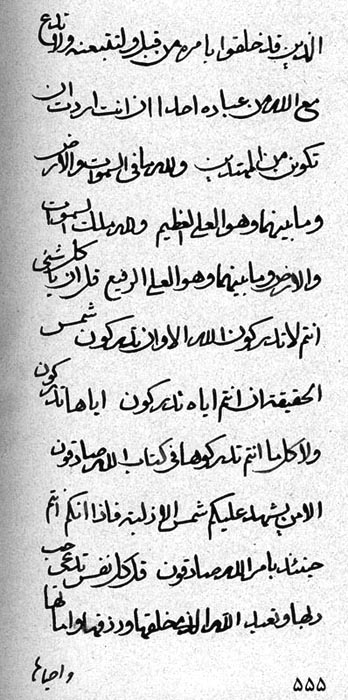 الذين قد خلقوا بامره من قبل ولتتبعنه ولا تدع
مع الله من عباده احدا ان انت اردت ان
تكونن من المهتدين ولله ما في السموات والارض
وما بينهما وهو العلي العظيم ولله ملك السموات
والارض وما بينهما وهو العلي الرفيع قل ان يا كل شيء
انتم لا تدركون الله الا وان تدركون شمس
الحقيقة ان انتم اياه تدركون اياها تدركون
ولا كل ما انتم تدركوها في كتاب الله صادقون
الا من يشهد عليكم شمس الازلية فاذا انكم انتم
حينئذ بامر الله صادقون قل كل نفس تدعي حب
ربها وتعبد الله الذي خلقها ورزقها واماتها
واحياها
۵۵۵